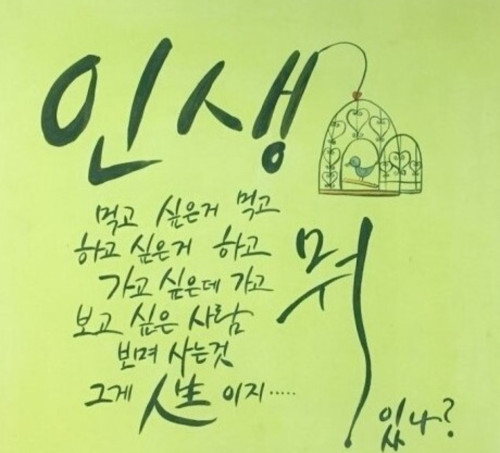 인생
뭐
있나?
먹고 싶은거 먹고
하고 싶은거 하고
가고 싶은데 가고
보고 싶은 사람
보며 사는것
그게 人生 이지.....